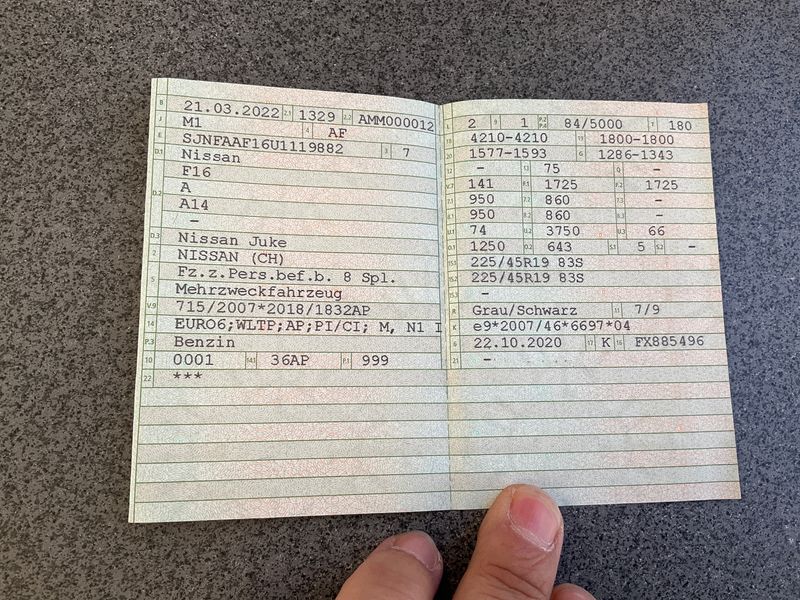 B 21.03.2022 2.1 1329 2.2 AMM000012
J M1 4 AF
E SJNFAAF16U1119882 3 7
D.1 Nissan
F16
D.2 A
A14
-
D.3 Nissan Juke
2 NISSAN (CH)
5 Fz.z.Pers.bef.b. 8 Spl.
Mehrzweckfahrzeug
V.9 715/2007*2018/1832AP
14 EURO6;WLTP;AP;PI/CI; M, N1 I
P.3 Benzin
10 0001 14.1 36AP P.1 999
22 ***
L 2 9 1 P.2 P.4 84/5000 T 180
18 4210-4210 19 1800-1800
20 1577-1593 G 1286-1343
12 - 13 75 Q -
V.7 141 F.1 1725 F.2 1725
7.1 950 7.2 860 7.3 -
8.1 950 8.2 860 8.3 -
U.1 74 U.2 3750 U.3 66
O.1 1250 O.2 643 S.1 5 S.2 -
15.1 225/45R19 83S
15.2 225/45R19 83S
15.3 -
R Grau/Schwarz 11 7/9
K e9*2007/46*6697*04
6 22.10.2020 17 K 16 FX885496
21 -